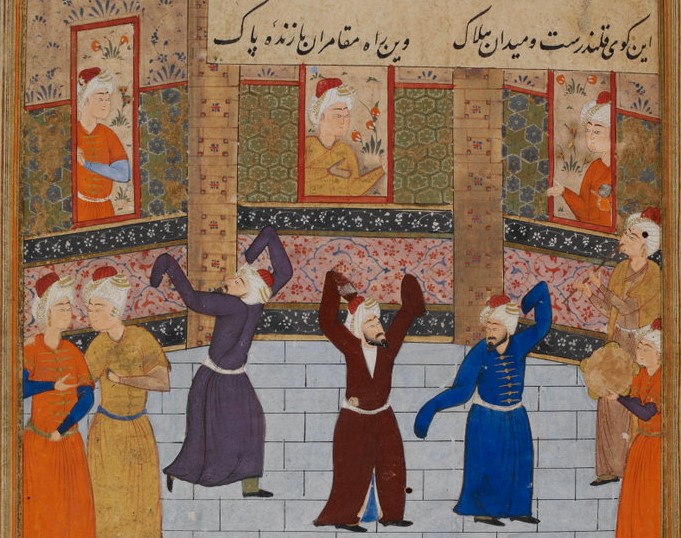 این کوی قلندرست و میدان هلاک
وین راه مقامران بازندهٔ پاک